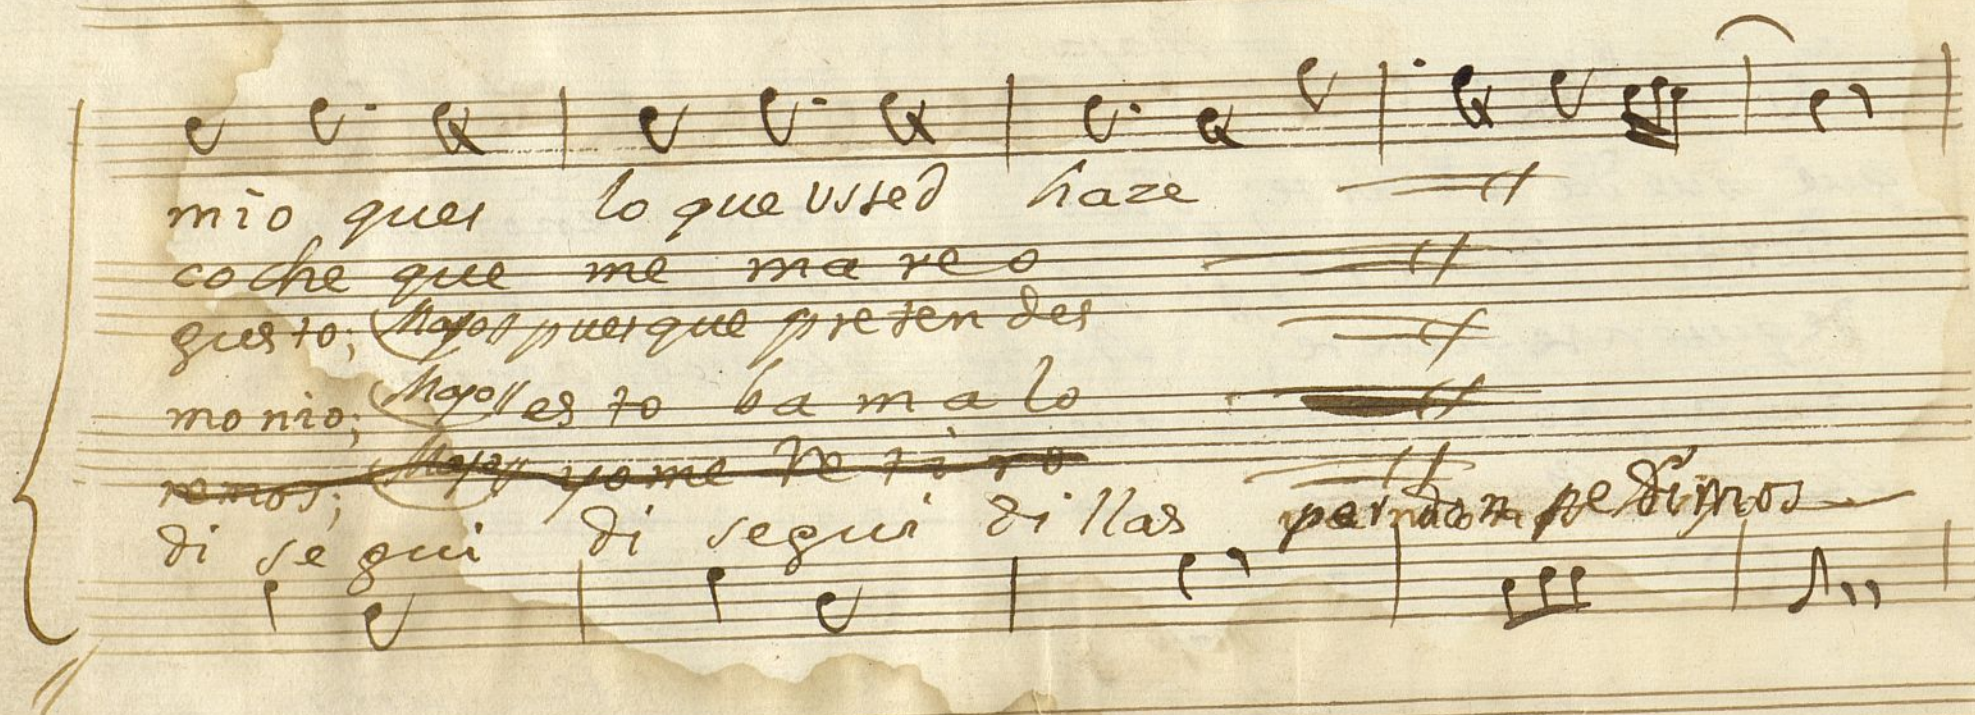 mio ques lo que Usted haze
coche que me mareo
gusto; Majos pues que pretendes
monio; Majo esto ba malo
remos; Majos yo me retiro
di segui di segui dillas perdon pedimos